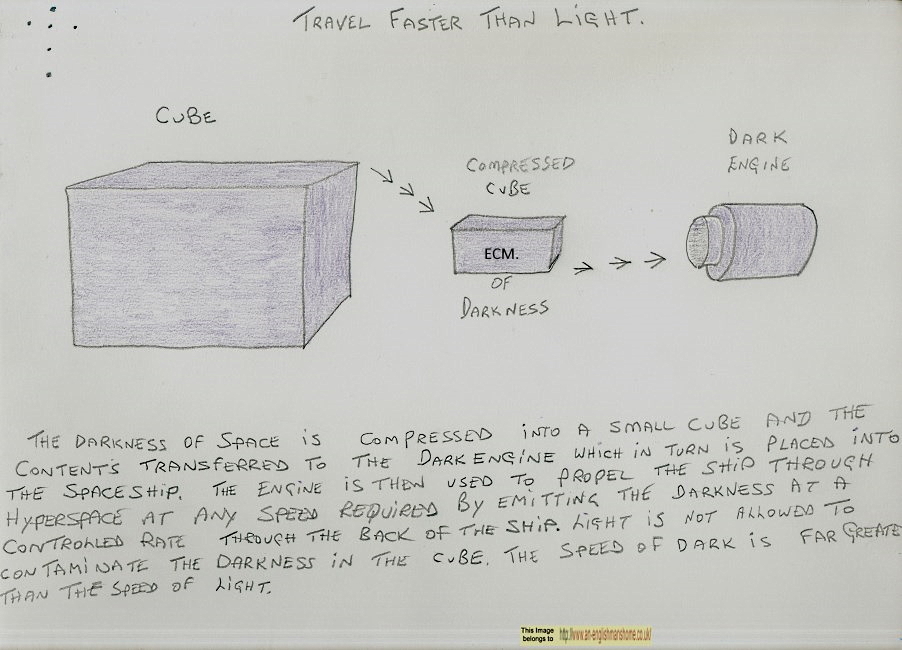 TRAVEL FASTER THAN LIGHT.
CUBE
COMPRESSED
CUBE
ECM.
OF
DARKNESS
DARK
ENGINE
THE DARKNESS OF SPACE IS COMPRESSED INTO A SMALL CUBE AND THE
CONTENT'S TRANSFERRED TO THE DARK ENGINE WHICH IN TURN IS PLACED INTO
THE SPACESHIP. THE ENGINE IS THEN USED TO PROPEL THE SHIP THROUGH
HYPERSPACE AT ANY SPEED REQUIRED BY EMITTING THE DARKNESS AT A
CONTROLED RATE THROUGH THE BACK OF THE SHIP. LIGHT IS NOT ALLOWED TO
CONTAMINATE THE DARKNESS IN THE CUBE. THE SPEED OF DARK IS FAR GREATE
THAN THE SPEED OF LIGHT.
This Image
belongs to
http://www.an-englishmanshome.co.uk/